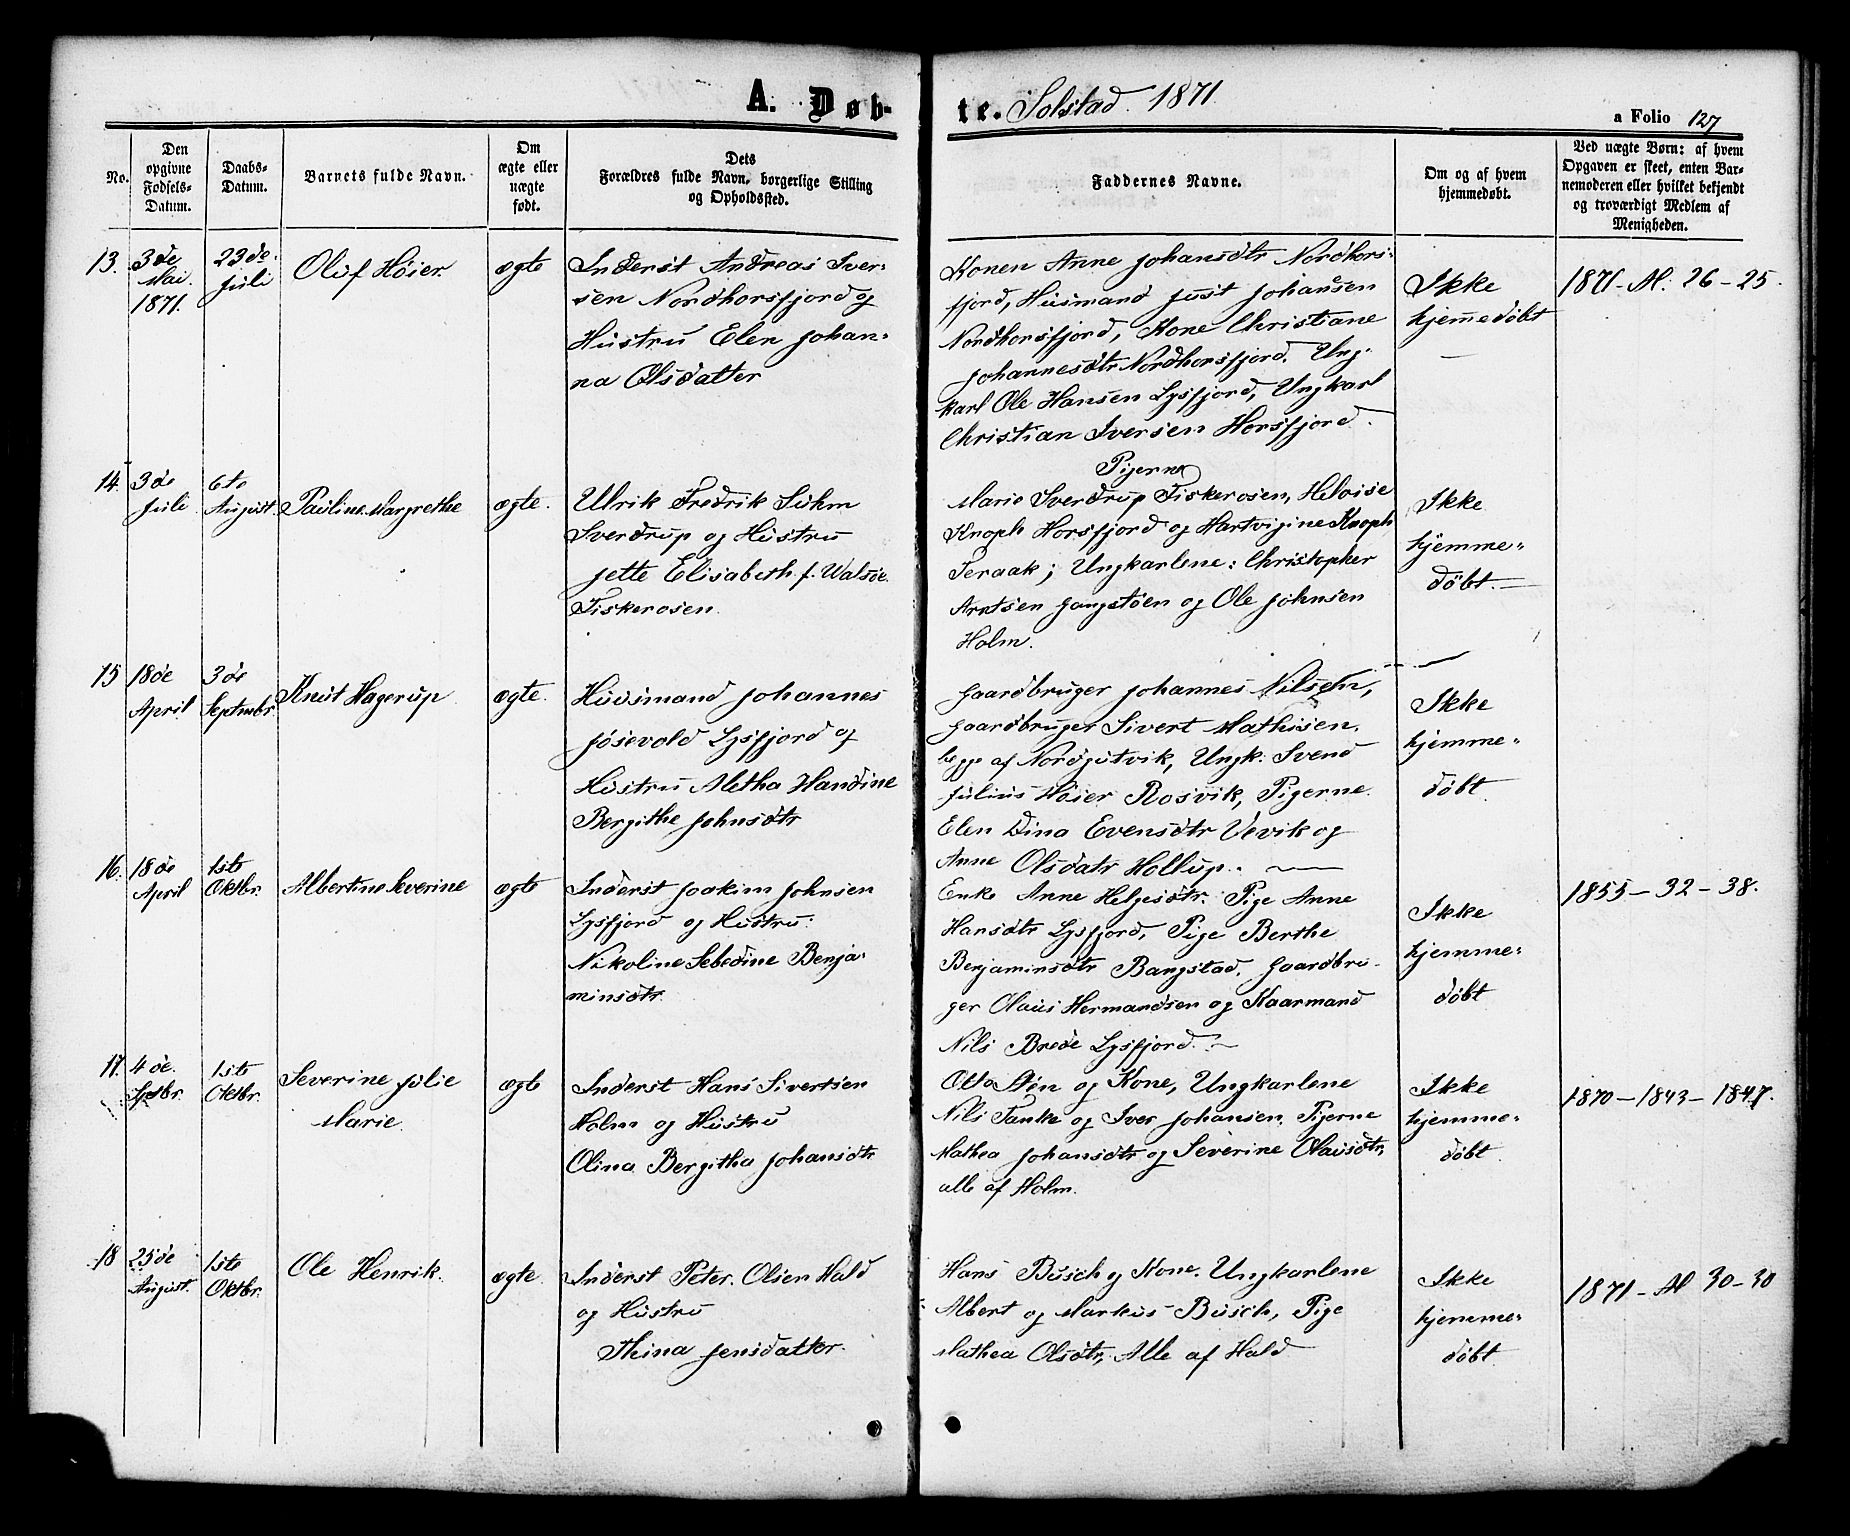 A. Døb-
te. Solstad 1871
a Folio 127
No.
Den
opgivne
Fødsels-
Datum.
Daabs-
Datum.
Barnets fulde Navn.
Om
ægte eller
uægte
født.
Dets
Forældres fulde Navn, borgerlige Stilling
og Opholdssted.
Faddernes Navne.
Om og af hvem
hjemmedøbt.
Ved uægte Børn: af hvem
Opgaven er skeet, enten Bar-
nemoderen eller hvilket bekjendt
og troværdigt Medlem af
Menigheden.
13.
3de
Mai.
1871.
23de
Juli
Oluf Höier
ægte
Inderst Andreas Iver-
sen Nordhorsfjord og
Hustru Elen Johan-
na Olsdatter
Konen Anne Johansdtr Nordhors-
fjord, Husmand Just Johansen
Nordhorsfjord, Kone Christiane
Johannesdtr Nordhorsfjord. Ung-
karl Ole Hansen Lysfjord, Ungkarl
Christian Iversen Horsfjord.
Ikke
hjemmedöbt
1871 - Al: 26 - 25.
14.
3de
Juli
6te
August.
Pauline Margrethe
ægte.
Ulrik Fredrik Suhm
Sverdrup og Hustru
Jette Elisabeth f. Walsöe
Fiskerosen.
Pigerne
Marie Sverdrup Fiskerosen, Heloise
Knoph Horsfjord og Hartvigine Knoph
Teraak; Ungkarlene: Christopher
Arntsen Gangstöen og Ole Johnsen
Holm.
Ikke
hjemme-
döbt.
15
18de
April
3de
Septmbr.
Knut Hagerup
ægte.
Huusmand Johannes
Jösevold Lysfjord og
Hustru Metha Handine
Bergithe Johnsdtr
Gaardbruger Johannes Nilsen,
Gaardbruger Sivert Mathisen.
begge af Nordgutvik, Ungk. Svend
Julius Höier Rosvik, Pigerne
Elen Dina Evensdtr Vevik og
Anne Olsdatr Hollup.
Ikke
hjemme-
döbt
16.
18de
April
1ste
Oktbr.
Albertine Severine
ægte
Inderst Joakim Johnsen
Lysfjord og Hustru:
Nikoline Sebedine Benja-
minsdtr.
Enke Anne Helgesdtr. Pige Anne
Hansdtr Lysfjord, Pige Berthe
Benjaminsdtr Bangstad. Gaardbru-
ger Olaus Hermandsen og Kaarmand
Nils Brede Lysfjord.
Ikke
hjemme-
döbt
1855 - 32 - 38.
17.
4de.
Sptbr.
1ste
Oktbr.
Severine Julie
Marie.
ægte
Inderst Hans Sivertsen
Holm og Hustru
Olina Bergitha Johansdtr
Otto Støn og Kone, Ungkarlene
Nils Tanke og Iver Johansen. Pigerne
Mathea Johansdtr og Severine Olausdtr,
alle af Holm.
Ikke
hjemme-
döbt
1870 - 1843 - 1847.
18
25de
August.
1ste
Oktbr.
Ole Henrik.
ægte.
Inderst Peter Olsen Hald
og Hustru
Thina Jensdatter.
Hans Busch og Kone. Ungkarlene
Albert og Markus Busch, Pige
Mathea Olsdtr, Alle af Hald
Ikke
hjemme-
döbt
1871 - Al 30 - 30